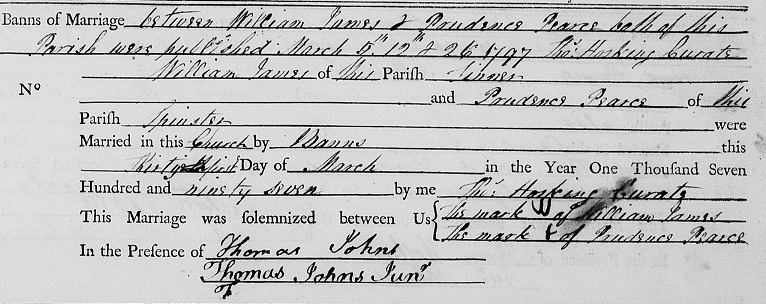 Banns of Marriage between William James & Prudence Pearce both of this
Parish were published March 5th 12th & 26 1797 Thos: Hosking Curate
William James of this Parish Tinner
No
and Prudence Pearce of this
Parish Spinster were
Married in this Church by Banns this
Thirty first Day of March in the Year One Thousand Seven
Hundred and ninety seven by me Thos: Hosking Curate
This Marriage was solemnized between Us { The mark of William James
The mark of Prudence Pearce
In the Presence of Thomas Johns
Thomas Johns Junr